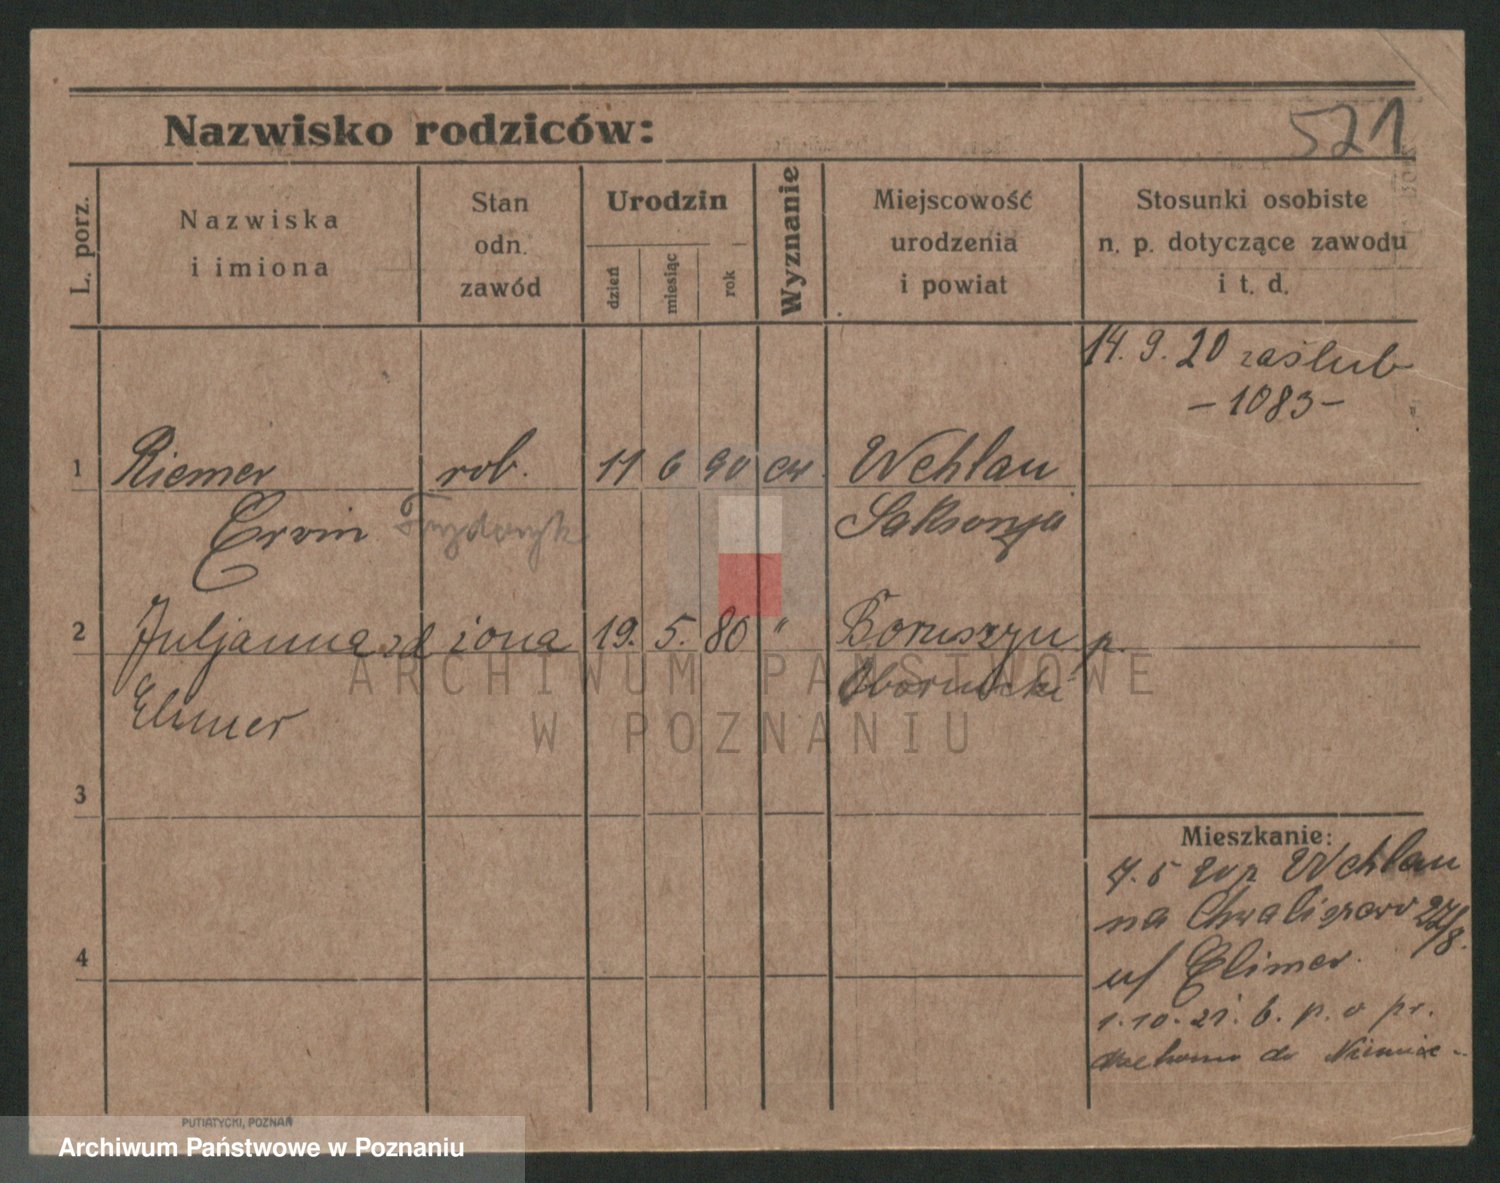 Nazwisko rodziców:
521
L. porz.
Nazwiska
i imiona
Stan
odn.
zawód
Urodzin
dzień
miesiąc
rok
Wyznanie
Miejscowość
urodzenia
i powiat
Stosunki osobiste
n. p. dotyczące zawodu
i t. d.
14. 9. 20 zaślub
- 1083 -
1 Riemer rob. 11 6 90 ew. Wehlau
Erwin Fryderyk Saksonja
2 Juljanna zd żona 19. 5. 80 " Boruszyn p.
Elsner Obornicki
3
Mieszkanie:
7. 5 20 z Wehlau
na Chwaliszewo 22/8.
u/ Elsner.
4
1. 10. 21. b. p. o pr.
do Niemiec -
PUTIATYCKI, POZNAŃ
ARCHIWUM PAŃSTWOWE
W POZNANIU
Archiwum Państwowe w Poznaniu